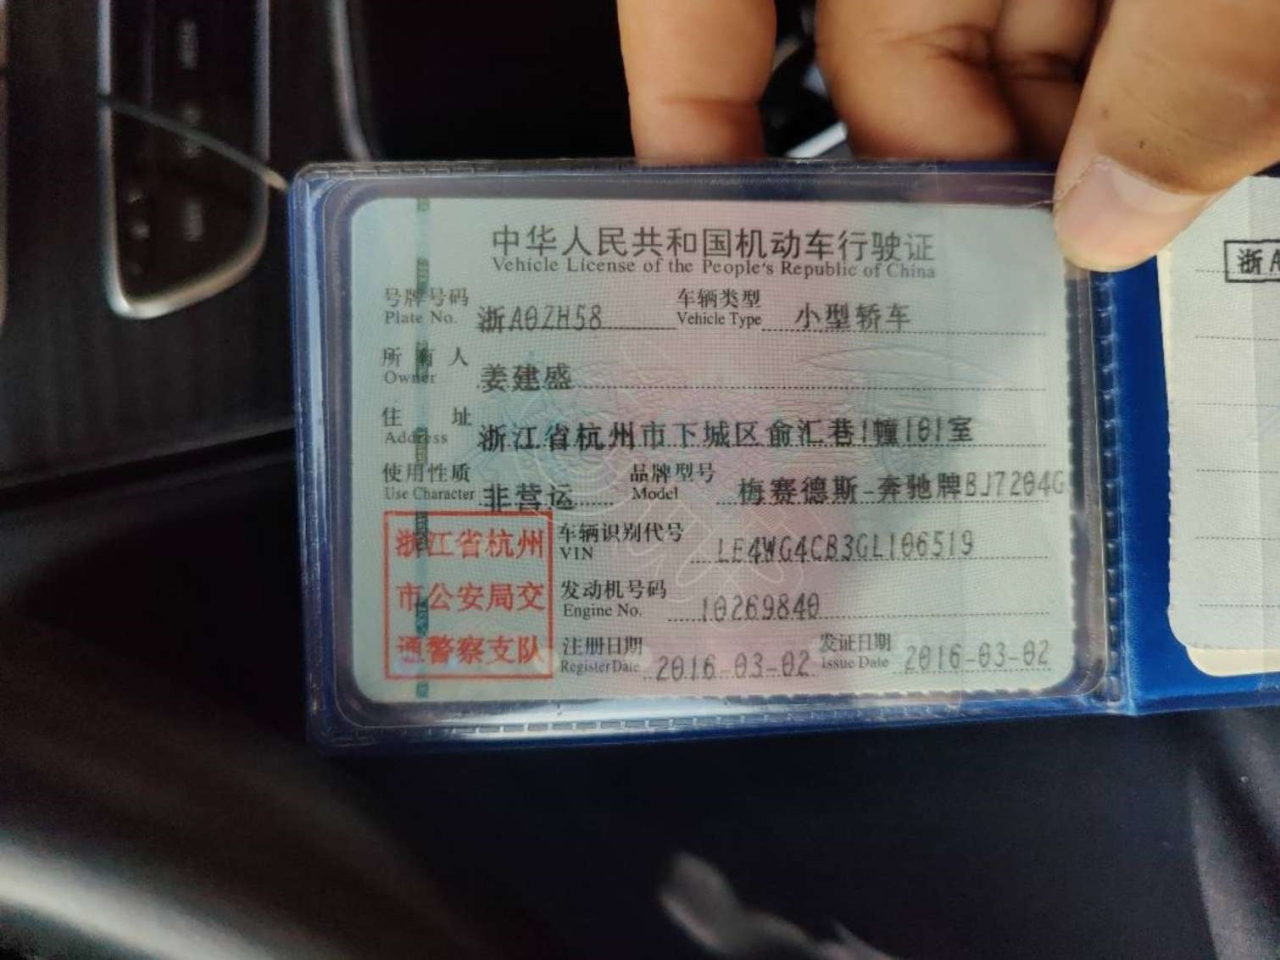 中华人民共和国机动车行驶证
Vehicle License of the People's Republic of China
号牌号码 浙A0ZH58 车辆类型 小型轿车
Plate No. Vehicle Type
所有人 姜建盛
Owner
住址 浙江省杭州市下城区俞汇巷1幢101室
Address
使用性质 非营运 品牌型号 梅赛德斯-奔驰牌BJ7204G
Use Character Model
浙江省杭州
市公安局交
通警察支队
车辆识别代号 LE4WG4CB3GL106519
VIN
发动机号码 10269840
Engine No.
注册日期 2016-03-02 发证日期 2016-03-02
Register Date Issue Date
浙A